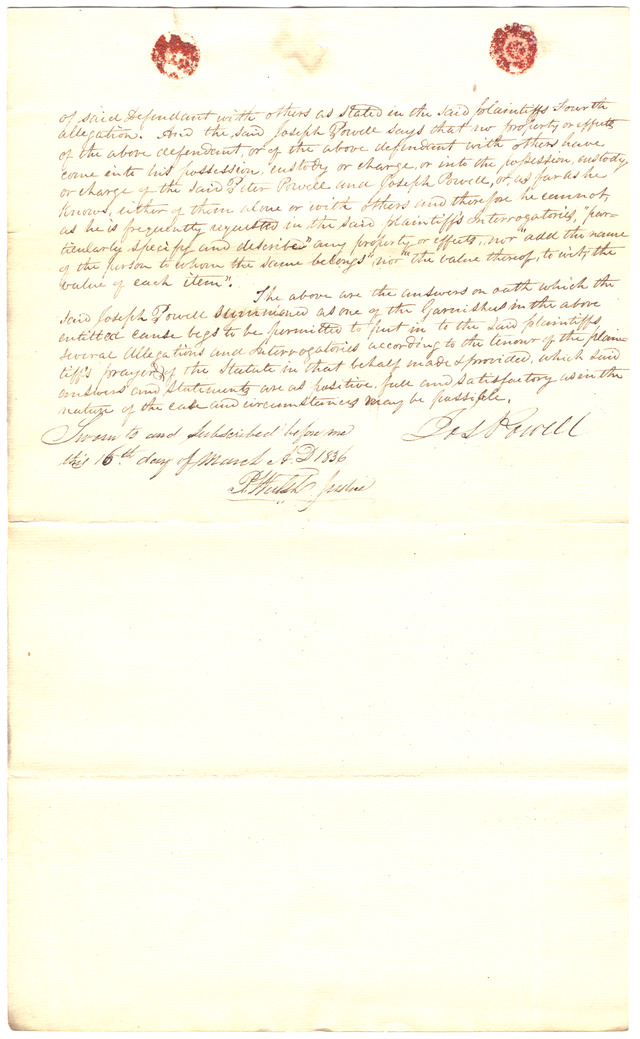 of said Defendant with others as stated in the said plaintiffs Fourth
allegation. And the said Joseph Powell says that no property or effects
of the above defendant, or of the above defendant with others have
come into his possession, custody or charge, or into the possession, custody
or charge of the said Peter Powell and Joseph Powell, or, as far as he
knows, either of them alone or with others and therefore he cannot,
as he is frequently requested in the said plaintiff's Interrogatories, "par-
ticularly specify and describe any property or effects", nor "add the name
of the person to whom the same belongs" nor "the value thereof, to wit, the
value of each item".
The above are the answers on oath which the
said Joseph Powell summoned as one of the Garnishees in the above
entitled cause begs to be permitted to put in to the said plaintiffs
several allegations and Interrogatories according to the tenour of the plain-
tiff's prayer & of the Statute in that behalf made & provided, which said
answers and statements are as positive, full and satisfactory as in the
nature of the case and circumstances may be possible.
Sworn to and subscribed before me
this 16th day of March A.D 1836
Jos Powell
P. Walsh Justice